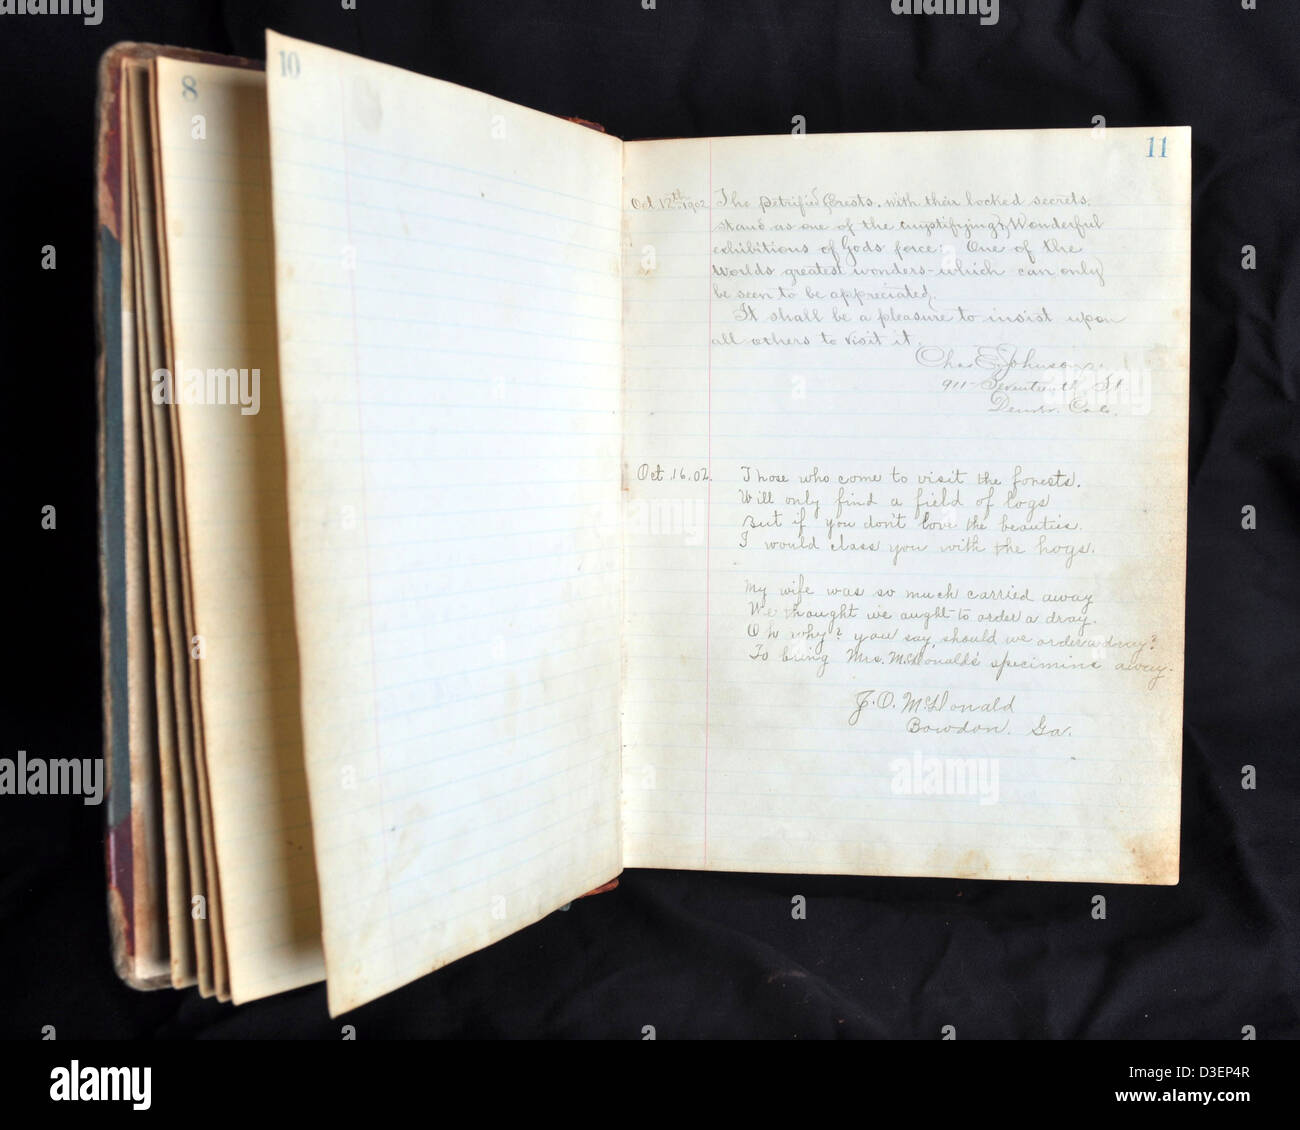 8
10
11
Oct 12th 1902 The Petrified Forests, with their locked secrets,
stand as one of the mystifying & Wonderful
exhibitions of Gods force: One of the
Worlds greatest wonders-which can only
be seen to be appreciated.
It shall be a pleasure to insist upon
all others to visit it.
Chas E. Johnson
911- Seventeenth St.
Denver. Colo.
Oct. 16. 02. Those who come to visit the forests.
Will only find a field of logs
But if you don't love the beauties.
I would class you with the hogs.
My wife was so much carried away
We thought we aught to order a dray.
Oh why? you say, should we order a dray?
To bring Mrs. McDonald's specimine away.
J. O. McDonald
Bowdon. Ga.
alamy
alamy
Image ID: D3EP4R
www.alamy.com